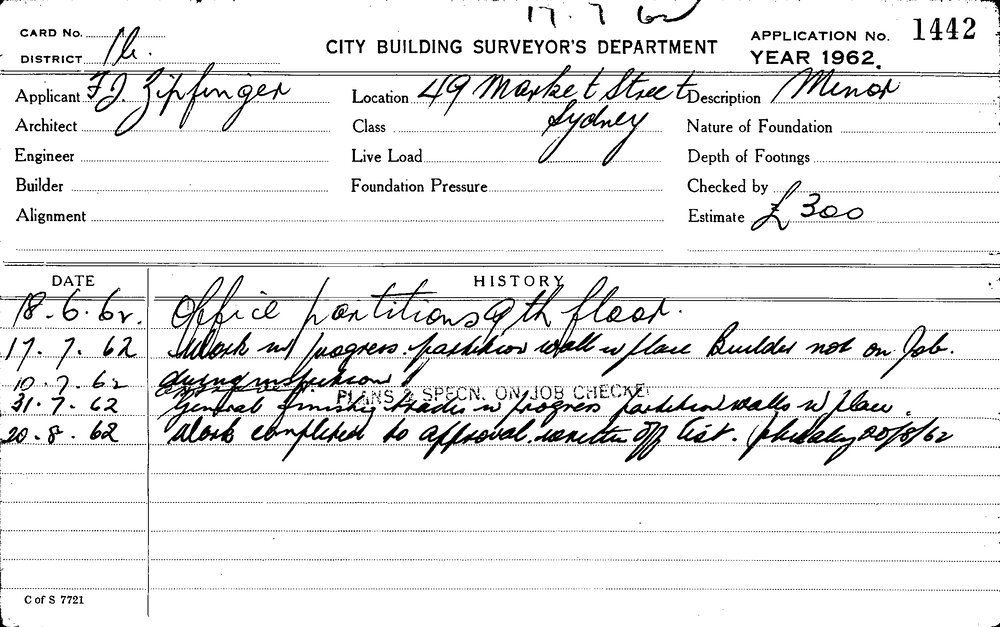 17.7.62
CARD No. CITY BUILDING SURVEYOR'S DEPARTMENT APPLICATION No. 1442
DISTRICT 1b. YEAR 1962.
Applicant F.J. Zipfinger Location 49 Market Street Description Minor
Architect Class Sydney Nature of Foundation
Engineer Live Load Depth of Footings
Builder Foundation Pressure Checked by
Alignment Estimate £300
DATE HISTORY
18.6.62. Office partitions 9th floor.
17.7.62 Work in progress. partition walls in place Builder not on Job.
10.7.62 during inspection
PLANS & SPECN. ON JOB CHECKED
31.7.62 General finishing trades in progress partition walls in place.
20.8.62 Work completed to approval. written off list. 20/8/62
C of S 7721